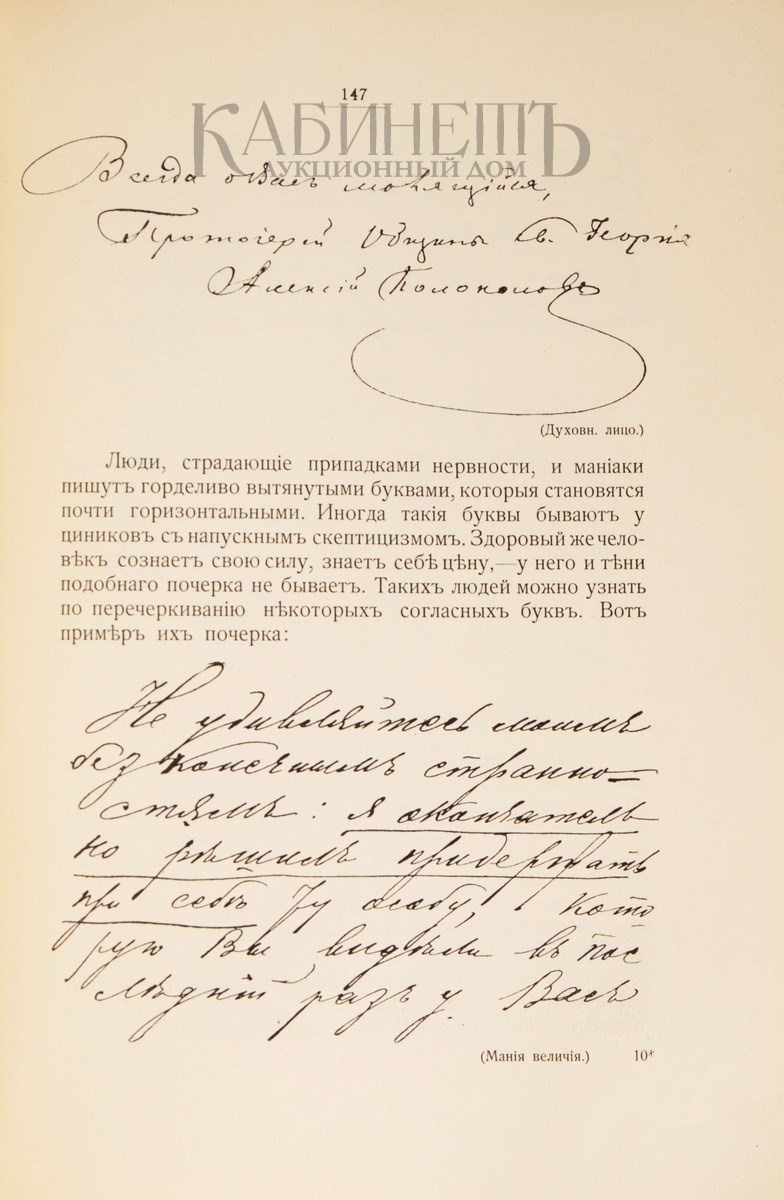 147
КАБИНЕТЪ
АУКЦИОННЫЙ ДОМ
Всегда о Васъ молящійся,
Протоіерей Общины Св. Георгія
Алексій Колоколовъ
(Духовн. лицо.)
Люди, страдающіе припадками нервности, и маніаки
пишутъ горделиво вытянутыми буквами, которыя становятся
почти горизонтальными. Иногда такія буквы бываютъ у
циниковъ съ напускнымъ скептицизмомъ. Здоровый же чело-
вѣкъ сознаетъ свою силу, знаетъ себѣ цѣну,—у него и тѣни
подобнаго почерка не бываетъ. Такихъ людей можно узнать
по перечеркиванію нѣкоторыхъ согласныхъ буквъ. Вотъ
примѣръ ихъ почерка:
Не удивляйтесь моимъ
безконечнымъ странно-
стямъ: я окончатель
но рѣшилъ придержать
при себѣ ту особу, кото
рую Вы видѣли въ пос
лѣдній разъ у Васъ
(Манія величія.) 10*